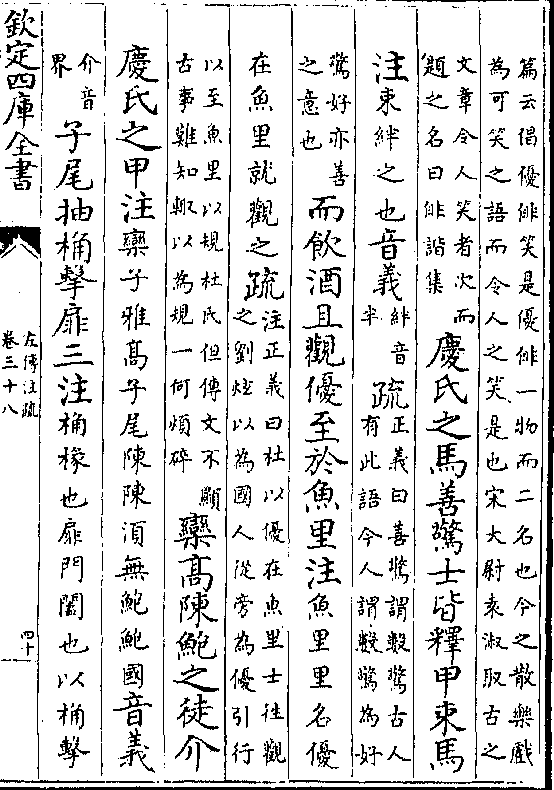 篇云倡優俳笑是優俳一物而二名也今之散樂戲
為可笑之語而令人之笑是也宋大尉袁淑取古之
文章令人笑者次而
題之名曰俳諧集
慶氏之馬善驚士皆釋甲束馬
注束絆之也音義
絆音
半
疏
正義曰善驚謂數驚古人
有此語今人謂數驚為好
驚好亦善
之意也
而飲酒且觀優至於魚里注魚里里名優
在魚里就觀之疏
注正義曰杜以優在魚里士往觀
之劉炫以為國人從旁為優引行
以至魚里以規杜氏但傳文不顯
古事難知輙以為規一何煩碎
欒髙陳鮑之徒介
慶氏之甲注欒子雅髙子尾陳陳湏無鮑鮑國音義
介音
界
子尾抽桷擊扉三注桷椽也扉門闔也以桷擊
欽定四庫全書
左傳注疏
卷三十八
四十